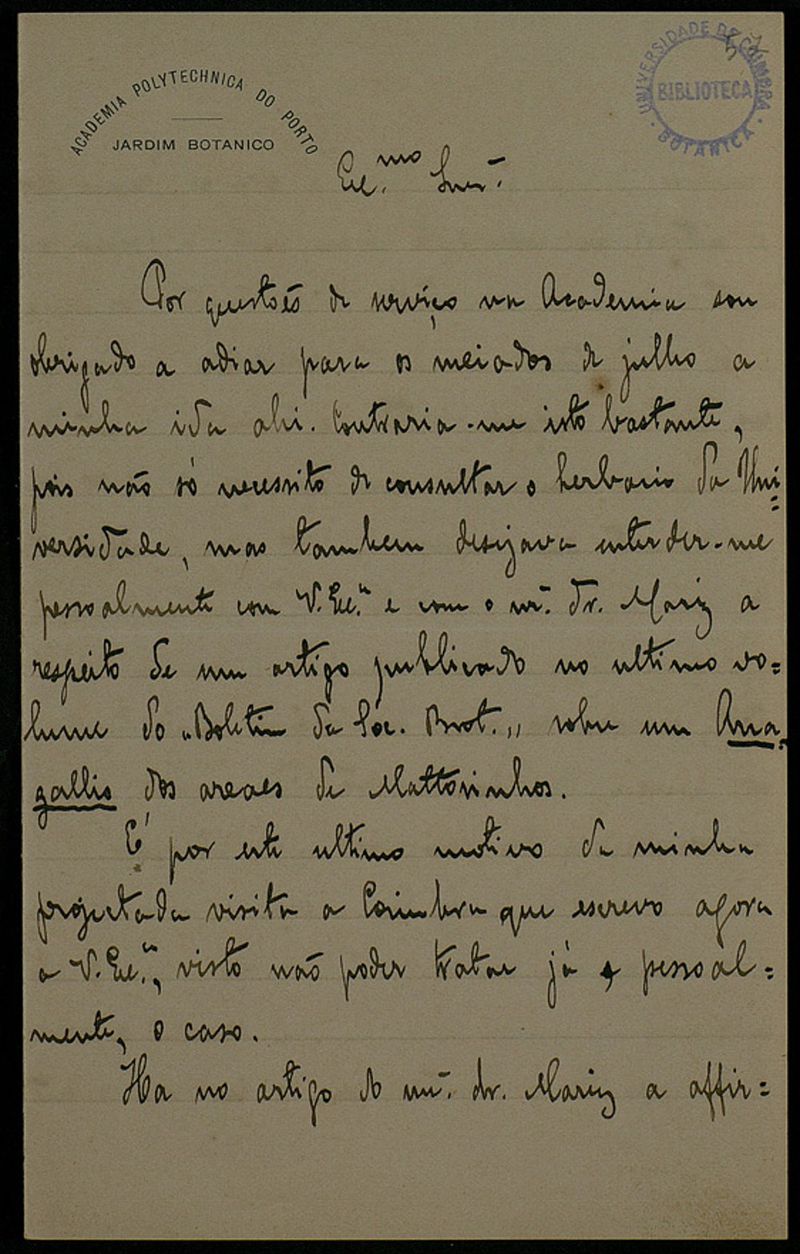 ACADEMIA POLYTECHNICA DO PORTO
JARDIM BOTANICO
UNIVERSIDADE DE COIMBRA
BIBLIOTECA
BOTANICA
Exc.mo Snr.
Por questões de serviço na Academia sou
obrigado a adiar para os meiados de julho a
minha ida ahi. Contraria-me isto bastante,
pois não só necessito de consultar o herbario da Uni=
versidade, mas tambem desejava entender-me
pessoalmente com V. Exc.a e com o snr. dr. Mariz a
respeito de um artigo publicado no ultimo vo=
lume do "Boletim da Soc. Brot.," sobre um Ana-
gallis dos areaes de Mattosinhos.
É por este ultimo motivo da minha
projectada visita a Coimbra que escrevo agora
a V. Exc.a, visto não poder tratar já, pessoal=
mente, o caso.
Ha no artigo do snr. dr. Mariz a affir=